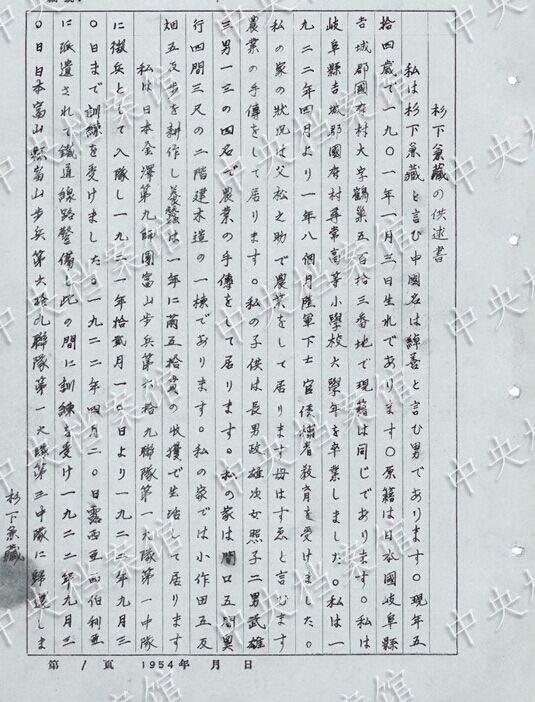 杉下兼藏の供述書
私は杉下兼藏と言ひ中國名は綽善と言ひ男であります。現年五
拾四歳で一九〇一年一月三日生れであります。原籍は日本國岐阜縣
吉城郡國府村大字鶴巢五百拾三番地で現籍は同じであります。私は
岐阜縣吉城郡國府村尋常高等小學校六學年を卒業しました。私は一
九二二年四月より一年八個月陸軍下士官候補者教育を受けました。
私の家の狀況は父松之助で農業をして居ります母はすゑと言ひます
農業の手傳をして居ります。私の子供は長男政雄次女照子二男武雄
三男一三の四名で農業の手傳をして居ります。私の家は間口五間奥
行四間三尺の二階建木造の一棟であります。私の家では小作田五反
畑五反歩を耕作し養蠶は一年に繭五拾貫の收獲で生活して居ります
私は日本金澤第九師團富山步兵第六拾九聯隊第一大隊第一中隊
に徵兵として入隊し一九二一年拾貳月一〇日より一九二二年九月三
〇日まで訓練を受けました。一九二二年四月二〇日露西亞西伯利亞
に派遣されて鐵道線路警備と此の間に訓練を受け一九二二年九月三
〇日日本富山縣富山步兵第六拾九聯隊第一大隊第三中隊に歸還しま
杉下兼藏
第 1 頁 1954年 月 日
中央档案馆